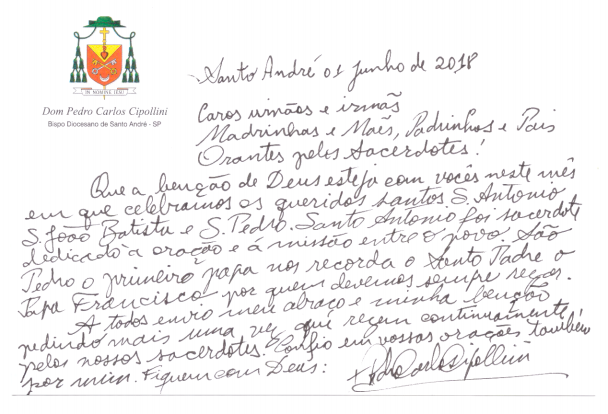 IN NOMINE IESU
Dom Pedro Carlos Cipollini
Bispo Diocesano de Santo André - SP
Santo André 01 junho de 2018
Caros irmãos e irmãs
Madrinhas e Mães, Padrinhos e Pais
Orantes pelos sacerdotes!
Que a benção de Deus esteja com vocês neste mês
em que celebramos os queridos santos. S. Antonio
S. João Batista e S. Pedro. Santo Antonio foi sacerdote
dedicado à oração e á missão entre o povo. São
Pedro o primeiro papa nos recorda o Santo Padre o
Papa Francisco por quem devemos sempre rezar.
A todos envio meu abraço e minha benção
pedindo mais uma vez que rezem continuamente
pelos nossos sacerdotes. Confio em vossas orações também
por mim. Fiquem com Deus:
+ Pedro Carlos Cipollini